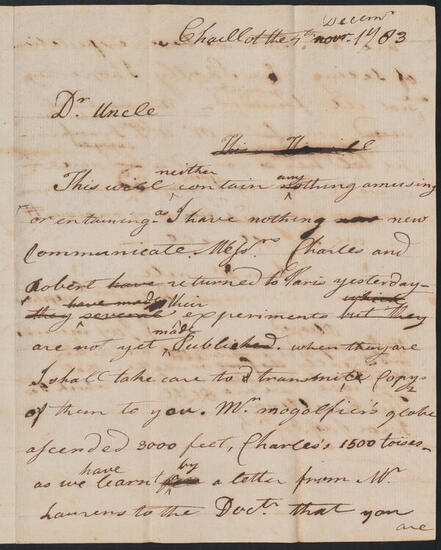 Decemr
Chaillot the 4th novr. 1783
Dr Uncle
This will
neither
This will contain any nothing amusing
or entaining as I have nothing new
Communicate. Messrs Charles and
Robert have returned to Paris yesterday
have made their which
they several experiments but they
made
are not yet Published. when they are
I shall take care to transmit a Copy
of them to you. Mr. mogolfier's globe
ascended 3000 feet, Charles's 1500 toises
have by
as we learnt a letter from Mr
Laurens to the Doctr. that you
are